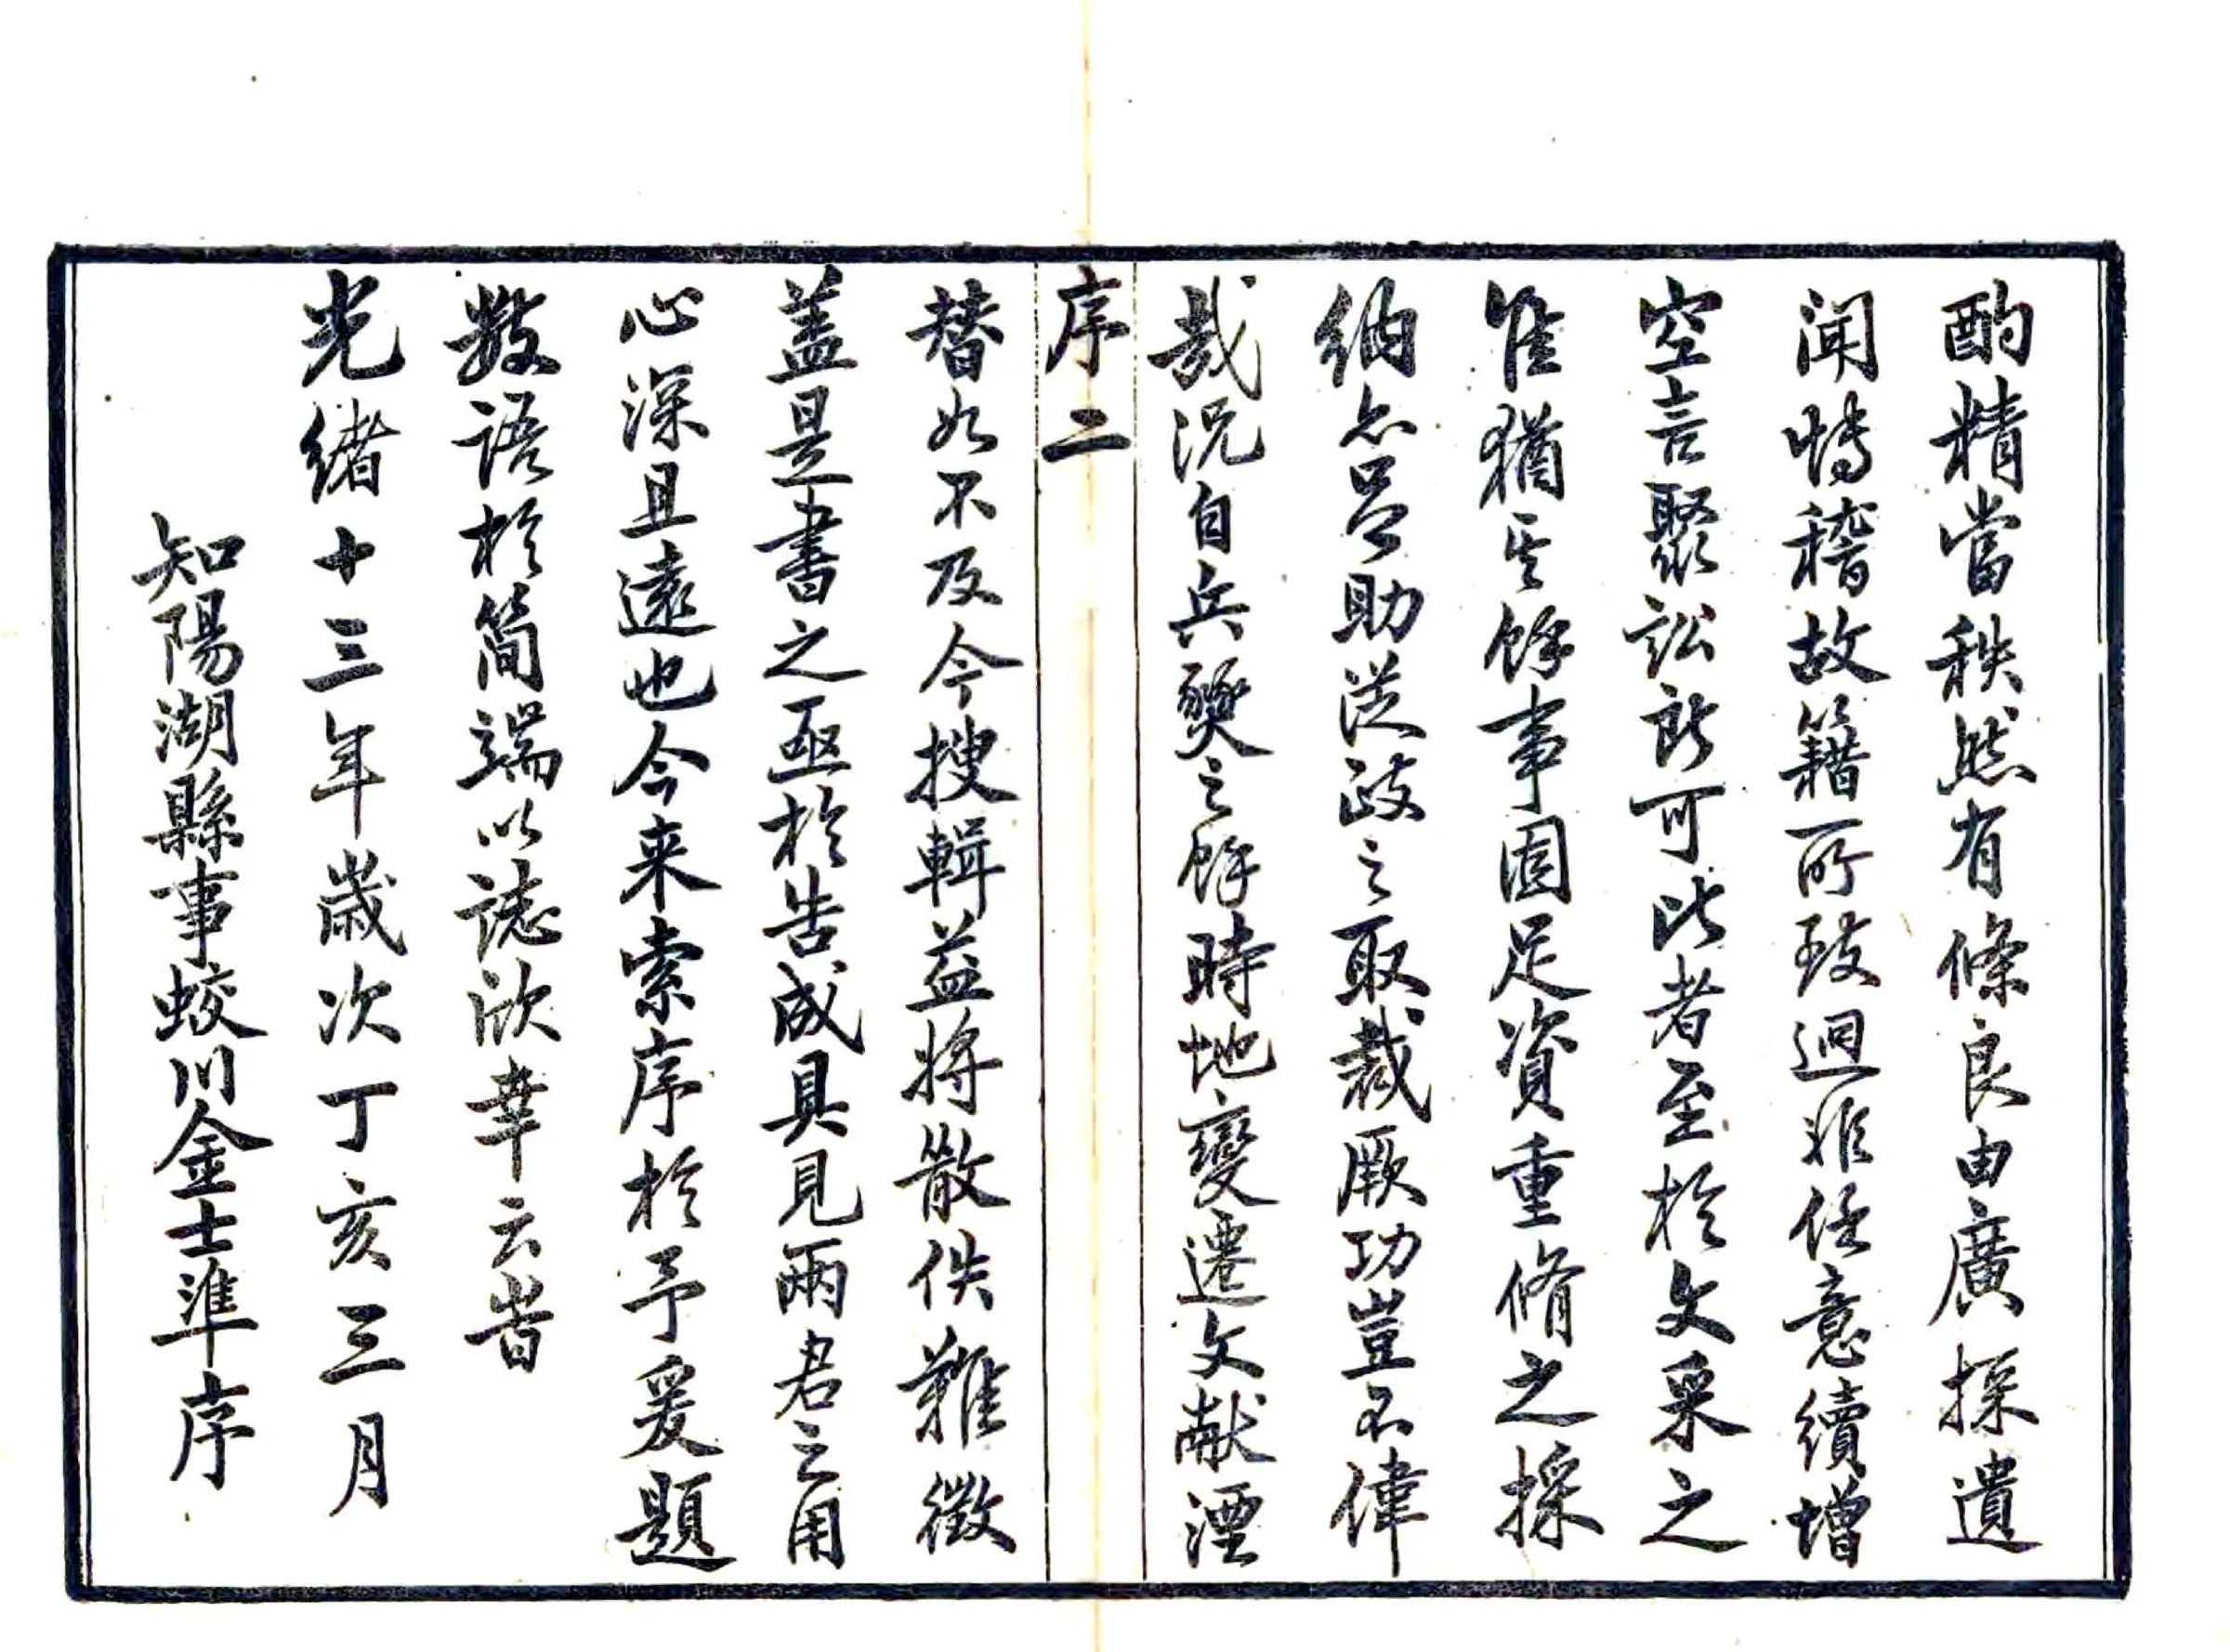 酌精當秩然有條良由廣採遺
聞博稽故籍所致迥非任意續增
空言聚訟所可比者至於文采之
雅猶其餘事固足資重脩之採
納為呂助從政之取裁厥功豈不偉
哉況自兵燹之餘時地變遷文献湮
序二
替如不及今搜輯益將散佚難徵
盖是書之亟於告成具見兩君之用
心深且遠也今来索序於予爰題
数語於简端以誌欣幸云峕
光緒十三年歲次丁亥三月
知陽湖縣事蛟川金士準序